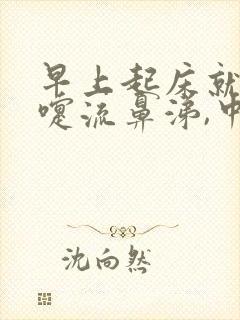 早上起床就
嚏流鼻涕,中
沈向然